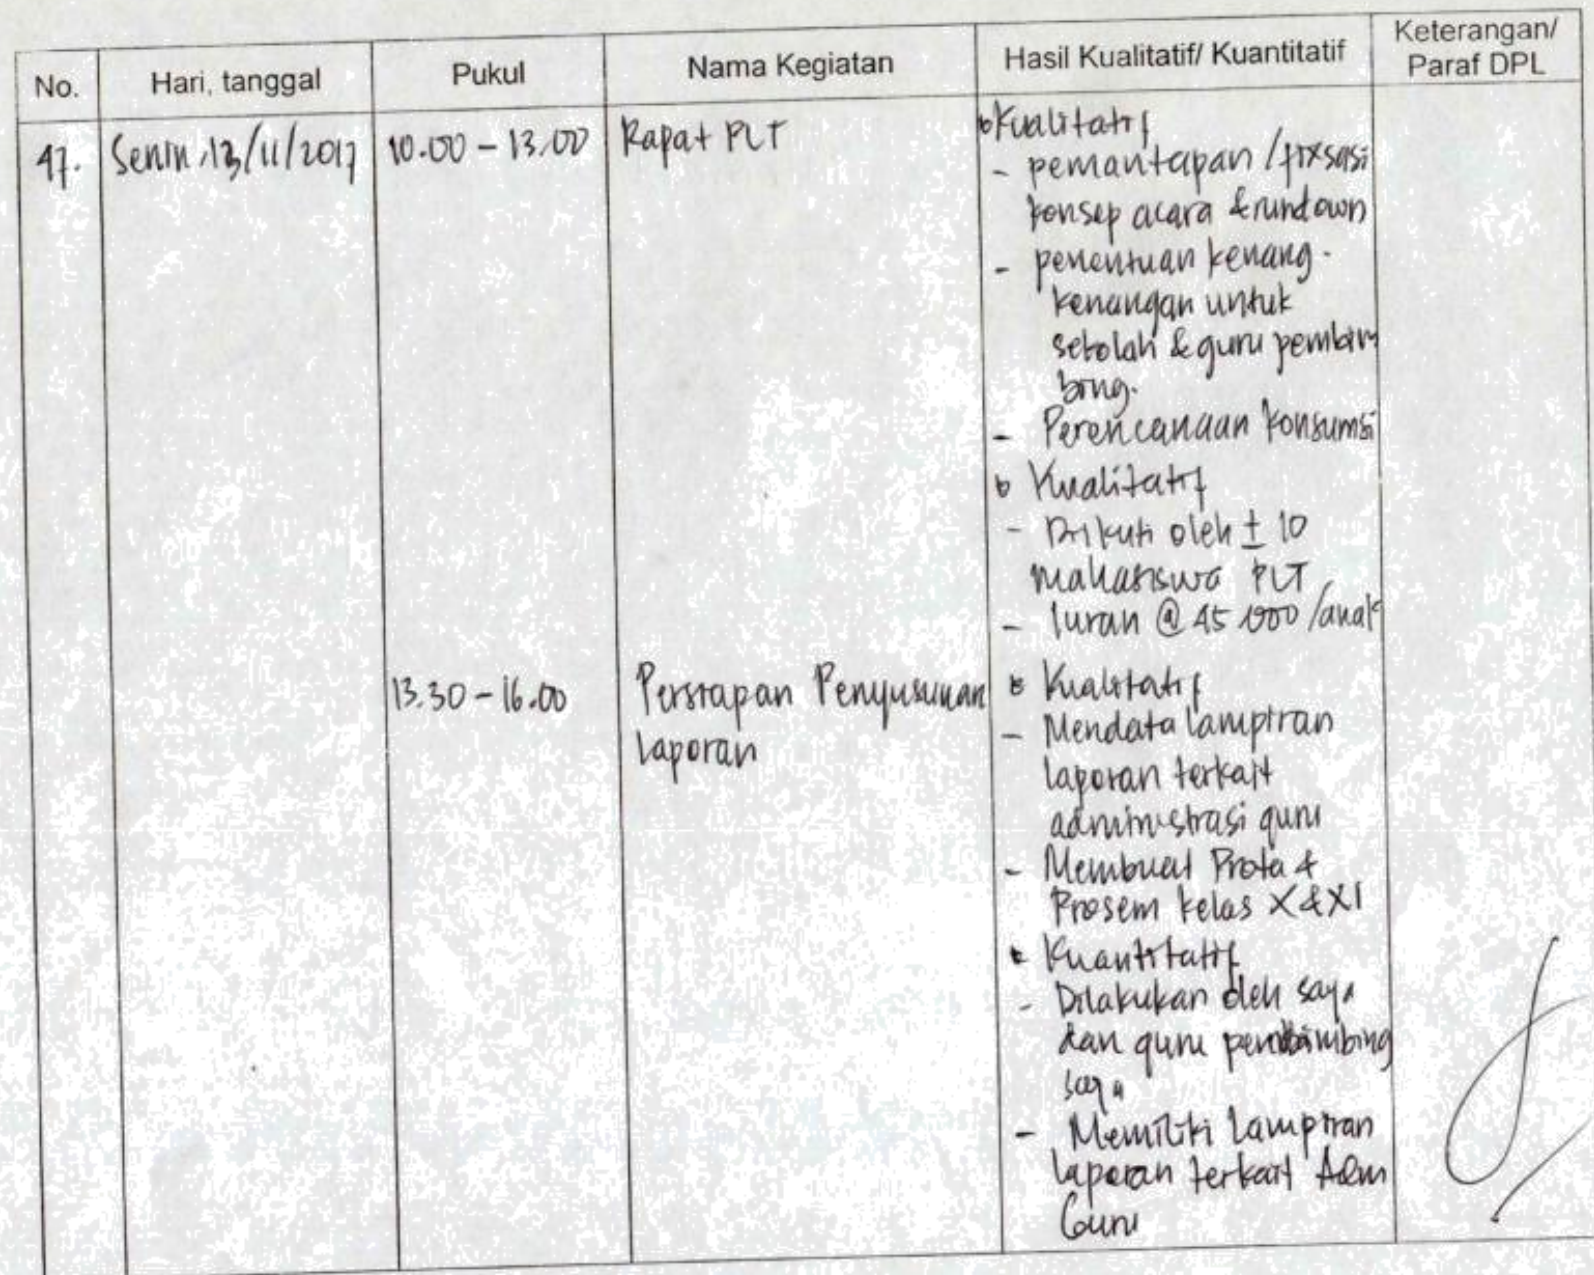 No. Hari, tanggal Pukul Nama Kegiatan Hasil Kualitatif/ Kuantitatif Keterangan/
Paraf DPL
47. Senin, 13/11/2017 10.00 - 13.00 Rapat PLT Kualitatif
- pemantapan / fixsasi
konsep acara & rundown
- penentuan kenang-
kenangan untuk
sekolah & guru pembim
bing.
- Perencanaan konsumsi
Kualitatif
- Diikuti oleh ± 10
mahasiswa PLT
- Iuran @ 45 000 /anak
13.30 - 16.00 Persiapan Penyusunan Kualitatif
laporan - Mendata lampiran
laporan terkait
administrasi guru
- Membuat Prota &
Prosem kelas X & XI
Kuantitatif
- Dilakukan oleh saya
dan guru pembimbing
saya
- Memiliki lampiran
laporan terkait Adm
Guru